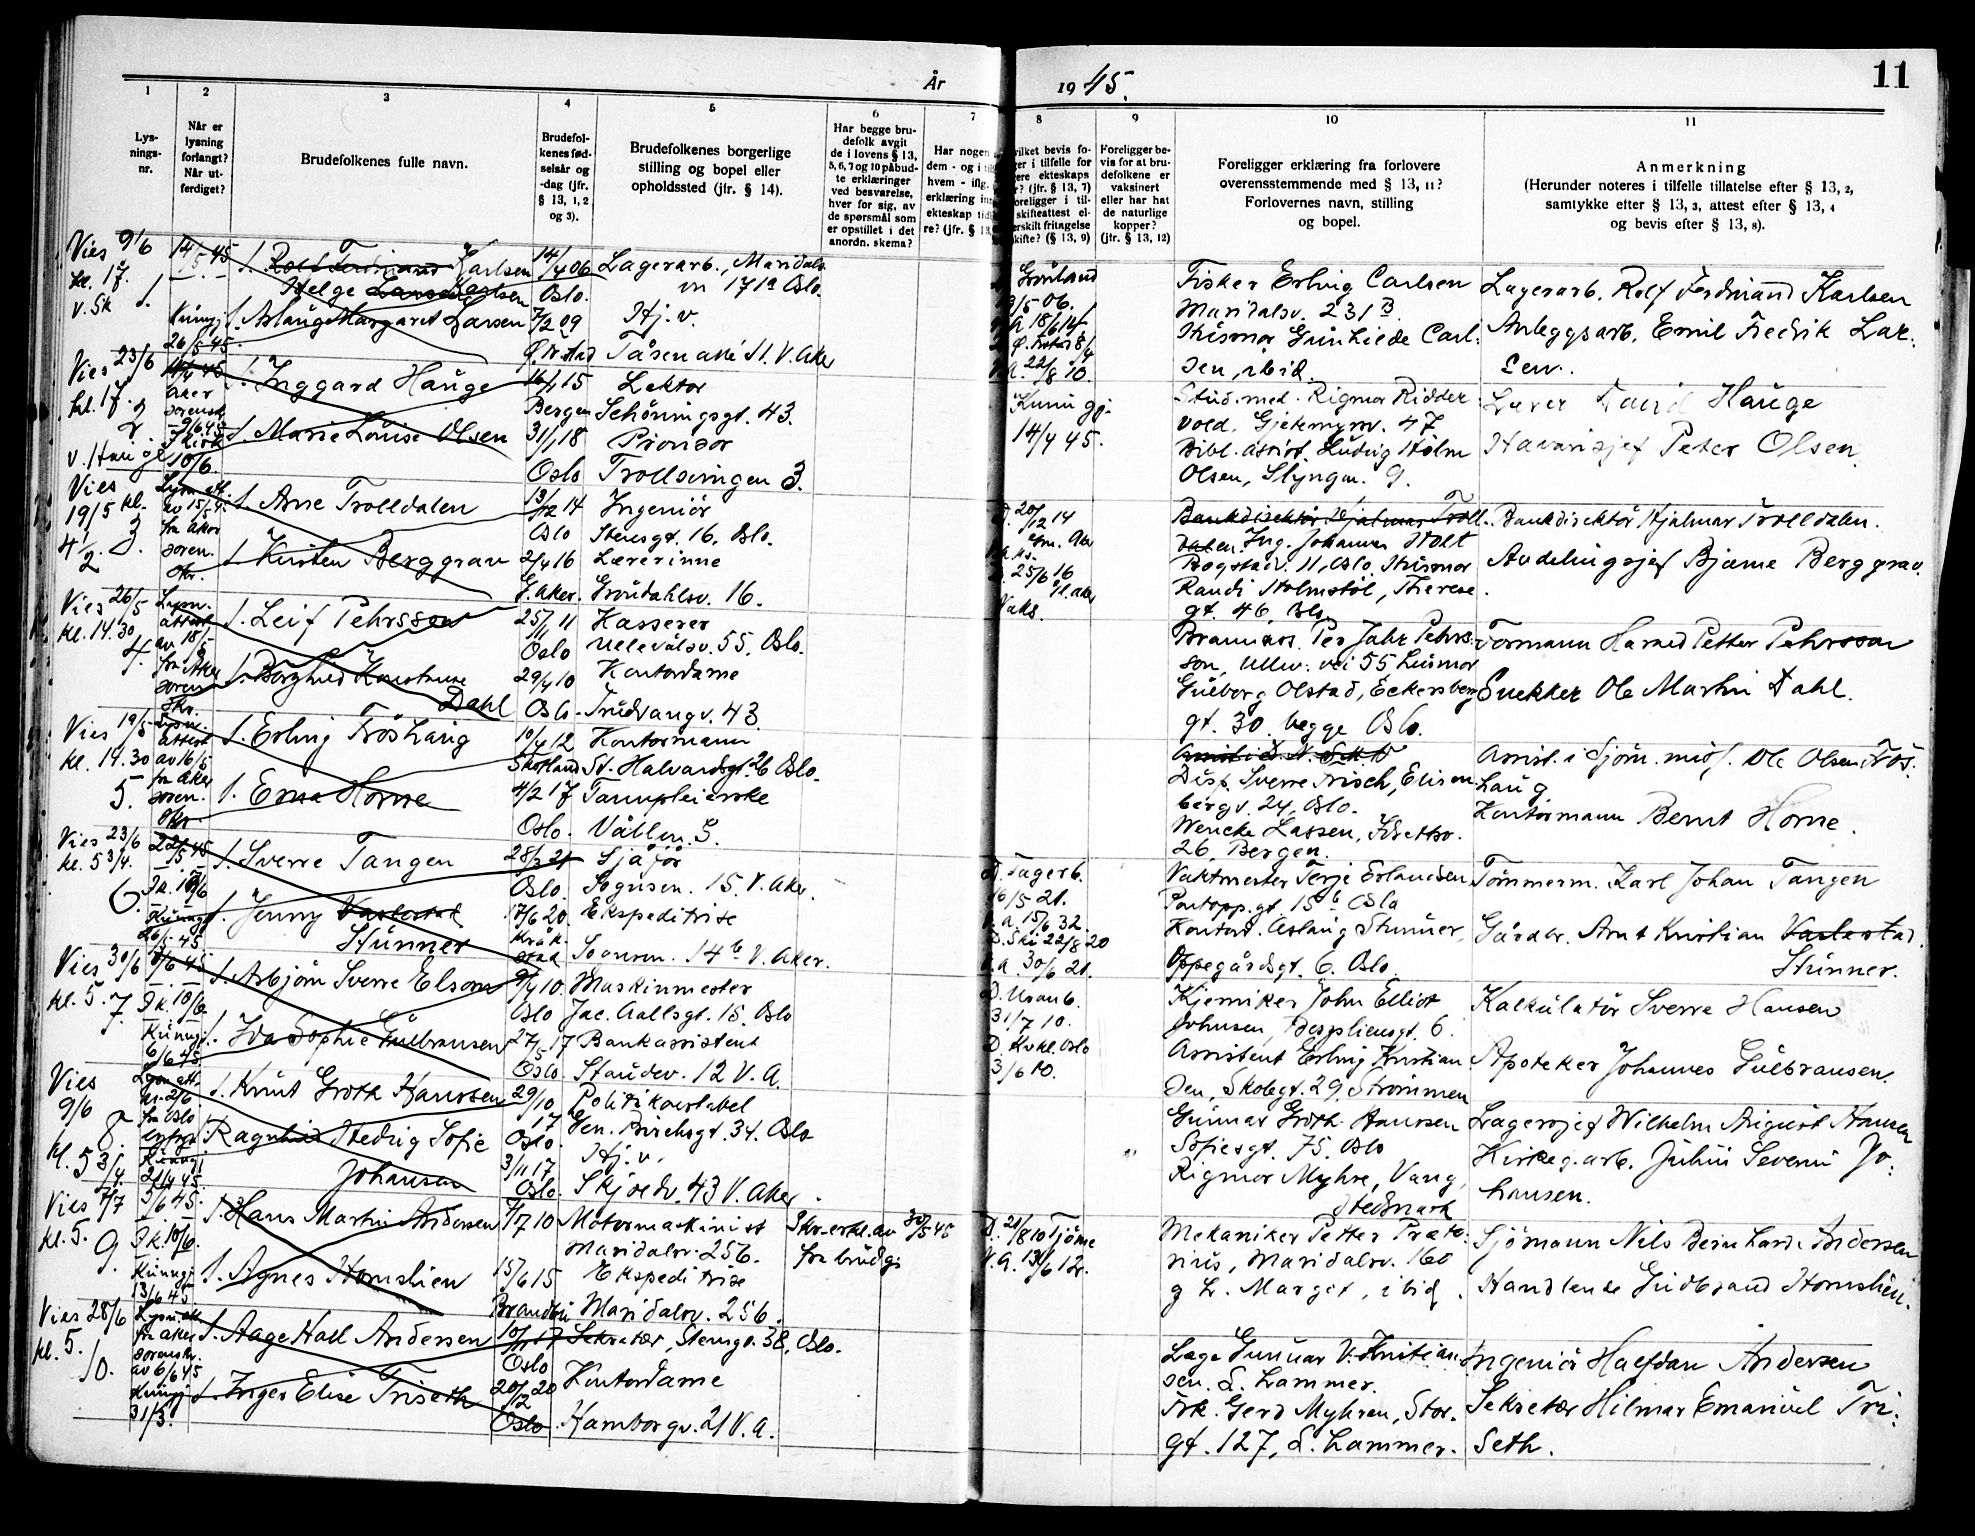 År
19 45.
11
1
2
3
4
5
6
7
8
9
10
11
Lys-
nings-
nr.
Når er
lysning
forlangt?
Når ut-
ferdiget?
Brudefolkenes fulle navn.
Brudefol-
kenes fød-
selsår og
-dag (jfr.
§ 13, 1, 2
og 3).
Brudefolkenes borgerlige
stilling og bopel eller
opholdssted (jfr. § 14).
Har begge bru-
defolk avgit
de i lovens § 13,
5, 6, 7 og 10 påbud-
te erklæringer
ved besvarelse,
hver for sig, av
de spørsmål som
er opstillet i det
anordn. skema?
Har nogen
dem - og i
hvem - ifig.
erklæring in
ekteskap tid
re? (jfr. § 13,
vilket bevis fo-
ger i tilfelle for
ere ekteskaps
r? (jfr. § 13, 7)
oreligger i til-
skifteattest el-
erskilt fritagelse
kifte? (§ 13, 9)
Foreligger be-
vis for at bru-
defolkene er
vaksinert
eller har hat
de naturlige
kopper?
(jfr. § 13, 12)
Foreligger erklæring fra forlovere
overensstemmende med § 13, 11?
Forlovernes navn, stilling
og bopel.
Anmerkning
(Herunder noteres i tilfelle tillatelse efter § 13, 2,
samtykke efter § 13, 3, attest efter § 13, 4
og bevis efter § 13, 8).
Vies 9/6
kl. 17.
1.
14/5 45
Kunngj.
26/5 45.
f. Rolf Ferdinand Karlsen
Helge Larsen Karlsen
f. Aslaug Margaret Larsen
14/4 06
Oslo.
7/2 09
Lagerarb., Maridals
vn 171a Oslo.
Hj. v.
Tåsen alle 11. V. Aker
Grønland
Fisker Erling Carlsen
Maridalsv. 231 B
Husmor Gunhilde Carl-
sen, ibid.
Lagerarb. Rolf Ferdinand Karlsen
Anleggsarb. Emil Fredrik Lar-
sen.
Vies 23/6
kl. 17.
2
f. Inggard Hauge
f. Marie Louise Olsen
16/1 15
Bergen
31/1 18
Oslo
Lektor
Schöningsgt. 43.
Provisor
Trollsvingen 3.
Kunngj.
14/4 45.
Stud. med. Rigmor Ridder
vold, Gjetemyrsv. 47
Bibl. assist. Ludvig Holm
Olsen, Slyngvn. 9.
Lærer Hauge
Havarisjef Peter Olsen.
Vies
19/5 kl.
4 1/2
3.
Lysn. att.
av 15/5 45
fra Aker
soren.
skr.
f. Arne Trolldalen
f. Kirsten Berggrav
13/12 14
Oslo
2/4 16
G. Aker.
Ingeniör
Stensgt. 16. Oslo.
Lærerinne
Gröndahlsv. 16.
D. 20/12 14
25/6 16
Vaks.
Bankdisektör Hjalmar Troll-
dalen. Ing. Johannes Holt
Bogstadv. 11, Oslo, Husmor
Randi Holmstöl, Therese
gt. 46, Oslo.
Bankdisektör Hjalmar Trolldalen.
Avdelingssjef Bjarne Berggrav.
Vies 26/5
kl. 14.30
4.
Lysn.
attest
av 18/5
fra Aker
soren
skr.
f. Leif Pehrsson
f. Borghild Konstanse
Dahl
25/11 11
Oslo
29/4 10
Oslo.
Kasserer
Ullevålsv. 55, Oslo.
Kontordame
Trudvangv. 43.
Brannkons. Per Jahr Pehrs-
son, Ullev. vei 55 Husmor
Gulborg Olstad, Eckersberg
gt. 30. begge Oslo.
Formann Harald Petter Pehrsson
Snekker Ole Martin Dahl.
Vies 19/5
kl. 14.30
5.
Lysn.
attest
av 16/5
fra Aker
soren.
skr.
f. Erling Fröshaug
f. Erna Horne
10/4 12
Skotland
4/2 17
Oslo.
Kontormann
St. Halvardsgt. 26 Oslo.
Tannpleierske
Vållvn. 5.
Disp. Sverre Frisch, Elisen
bergv. 24, Oslo.
Wencke Lassen,
26, Bergen.
Assist. i Sjöm. misj. Ole Olsen Frös-
haug
Kontormann Bernt Horne.
Vies 23/6
kl. 5 3/4.
6.
22/5 45
Kunngj.
26/5 45
f. Sverre Tangen
f. Jenny Vaslestad
Stunner
28/3 21
Oslo.
17/6 20.
Kråk-
stad
Sjåför
Sognsvn. 15. V. Aker.
Ekspeditrise
Sognsvn. 14b V. Aker.
D. Fagerb.
16/5 21.
15/6 32.
D. Ski 22/8 20
V.a. 30/6 21.
Vaktmester Terje Erlandsen
Pontopp. gt 15b Oslo
Kontord. Aslaug Stunner,
Oppegårdsgt. 6. Oslo.
Tömmerm. Karl Johan Tangen
Gårdbr. Arnt Kristian Vaslestad.
Stunner.
Vies 30/6
kl. 5.
7.
Kunngj.
6/6 45
f. Asbjörn Sverre Elson
f. Ida Sophie Gulbransen
9/4 10.
Oslo
27/5 17
Oslo.
Maskinmester
Jac. Aallsgt. 15. Oslo
Bankassistent
Staudev. 12 V. A.
D. Uranb.
31/7 10.
3/6 10.
Kjemiker John Elliot
Johnsen, Bergsliensgt. 6.
Assistent Erling Kristian
sen, Skolegt. 29, Strømmen
Kalkulatör Sverre Hansen
Apoteker Johannes Gulbransen.
Vies
9/6
8.
kl. 5 3/4.
Lysn. att.
av 2/6
fra Oslo
byfogd
Kunngj.
21/4 45.
f. Knut Groth Hanssen
Ragnhild Hedvig Sofie
Johansen
29/10
17
Oslo.
3/11 17
Oslo.
Politikonstabel
Gen. Birchsgt. 34. Oslo
Hj. v.
Skjoldv. 43 V. Aker.
Gunnar Groth Hanssen
Sofiesgt. 75, Oslo
Rigmor Myhre, Vang,
Hedmark
Lagersjef Wilhelm August Hansen
Kirkeg. arb. Julius Severin Jo-
hansen.
Vies 7/7
kl. 5.
9.
5/6 45.
Kunngj.
13/6 45
f. Hans Martin Andersen
f. Agnes Hornslien
7/7 10
15/6 15
Brandbu
Motormaskinist
Maridalsv. 256.
Ekspeditrise
Maridalsv. 256.
Skr. erkl. av
fra brudgj.
30/5 45
D. 21/8 10 Tjöme
Mekaniker Petter Præto-
rius, Maridalsv. 160
g L. Margit, ibid.
Sjömann Nils Bernhard Andersen
Handlende Gudbrand Hornslien.
Vies 28/6
kl. 5.
10.
Lysn. att.
fra Aker
sorenskr.
av 6/6 45
Kunngj.
31/3.
f. Aage Hall Andersen
f. Inger Elise Triseth
10/7 17
Oslo
20/12 20
Oslo
Sekretær, Stensgt. 38, Oslo.
Kontordame
Hamborgv. 21 V. A.
Lage Gunnar V. Kristian-
sen. L. Hammer.
Frk. Gerd Myhren, Stor-
gt. 127, L. Hammer.
Ingeniör Halfdan Andersen
Sekretær Hilmar Emanuel Tri-
seth.